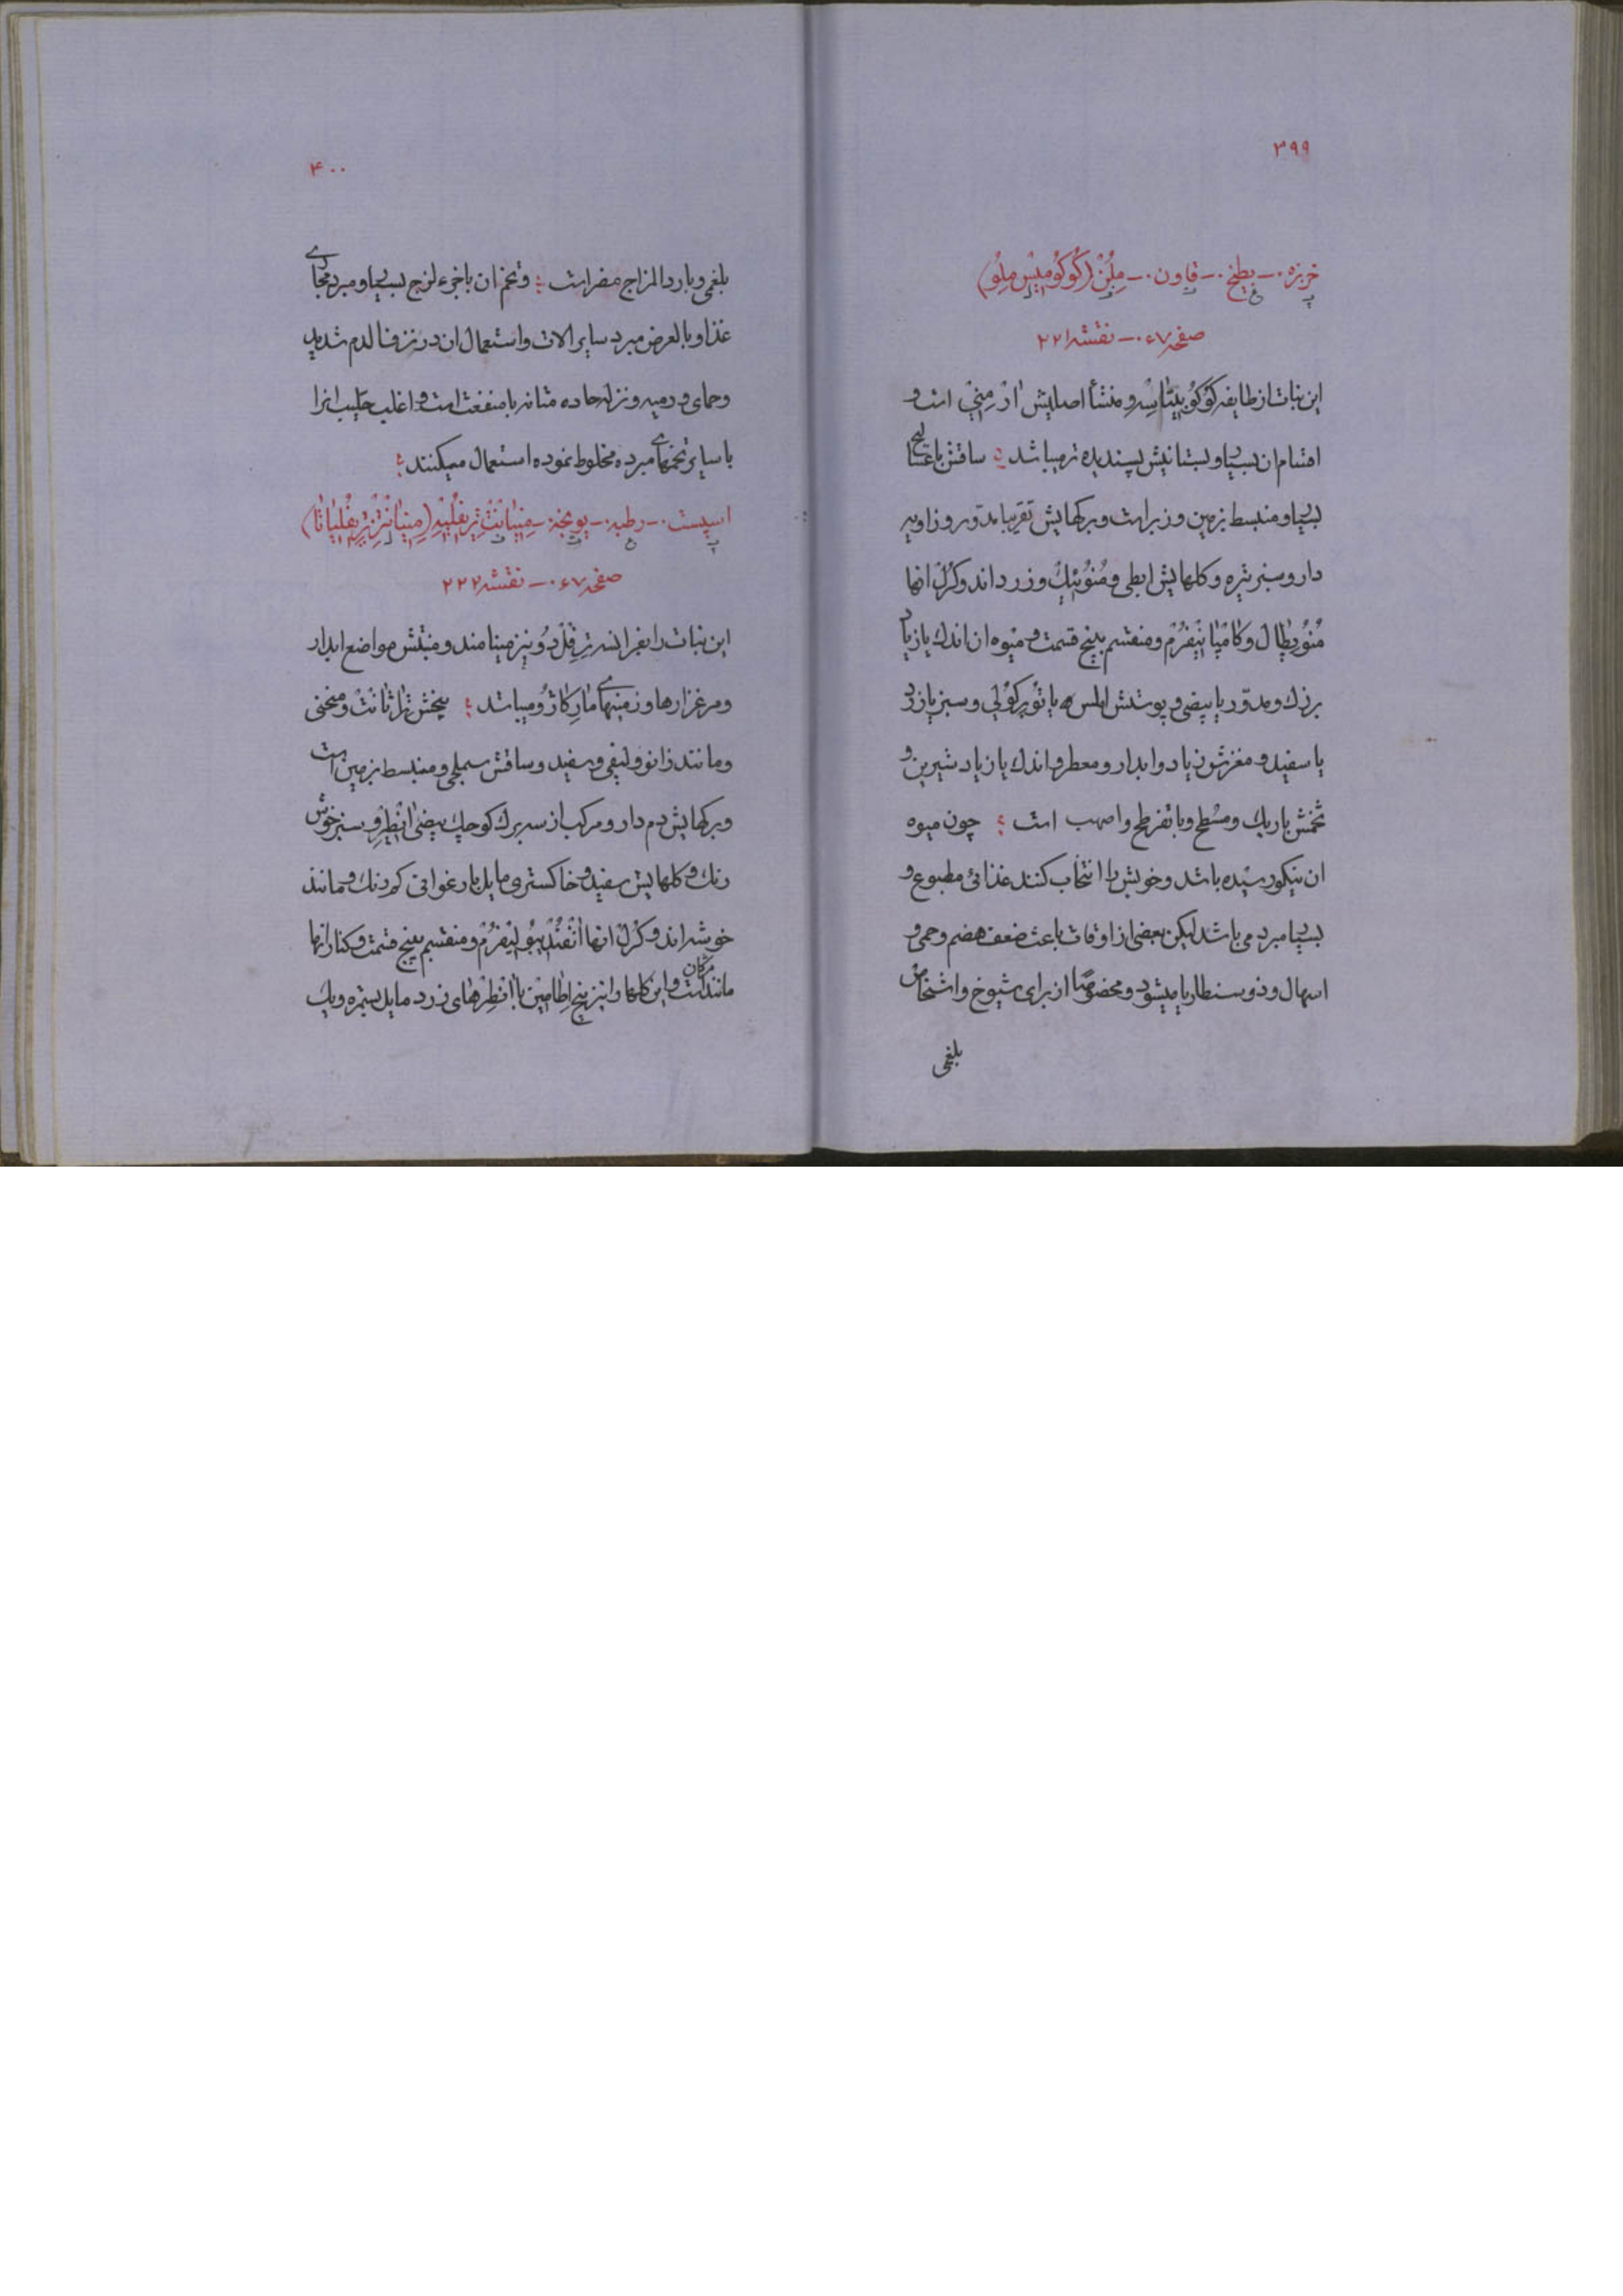 ۳۹۹
خربزه ۰ــ بطیخ ۰ــ قاون ۰ــ مِلُنْ (کُوکُومیٖسْ مِلُوْ)
صفحه ۶۷ ۰ــ نقشه ۲۲۱
این نبات از طایفه کُوکُوربیتاسِه و منشأ اصلیش از است و
اقسام ان بسیا و بستانیش پسندیده تر میباشد ؛ ساقش باعتسالیج
بسیا و منبسط بزمین و زبر است و برکهایش تقریبا مدور و زاویه
دار و سبز تیره و کلهایش ابطی و مُنُوئیٖك و زرد اند و کُرُلْ انها
مُنُوپِطال و کامْپانیٖفُرْم و منقسم بپنج قسمت و میوه ان اندك یا زیاد
بزرك و مدوّر یا بیضی و پوستش املس یا و سبز یا زرد
یا سفید و مغزش زیاد و ابدار و معطر و اندك یا زیاد شیرین و
تخمش باریك و مسُطح و با تفرطح و اصهب است ؛ چون میوه
ان نیکو رسیده باشد و خوبش را انتخاب کنند غذائی مطبوع و
بسیا مبرد می باشد لیکن بعضی از اوقات باعث ضعف هضم و حمی و
اسهال و ذوسنطاریا میشود و مخصوصًا از برای شیوخ و اشخاص
بلغمی
۴۰۰
بلغمی و بارد المزاج مضر است ؛ و تخم ان با جزء لزج بسیا و مبرد مجاری
غذا و بالعرض مبرد سایر الات و استعمال ان در نزف الدم شدید
و حمای ودمیه و نزله حاده مثانه با منفعت است و اغلب حلیب انرا
با سایر تخمهای مبرده مخلوط نموده استعمال میکنند ؛
اسپست ۰ــ رطبه ۰ــ یونجه ۰ــ مِنیٖانْتْ تِریٖفُلیٖهِ (مِنیٖانْتِزْ تِریٖفُلیٖاتا)
صفحه ۶۷ ۰ــ نقشه ۲۲۲
این نبات را بفرانسه تِرفِلْ دُو نیز مینامند و منبتش مواضع ابدار
و مرغزارها و زمینهای مارِکاژُو میباشد ؛ بیخش تراثانت و منحنی
و مانند زانو و لیفی و سفید و ساقش سهلی و منبسط بزمین است
و برکهایش دم دار و مرکب از سه برك کوچك بیضی انْطِرُو سبز خوش
رنك و کلهایش سفید و خاکستری مایل بارغوانی کم رنك و مانند
خوشه اند و کُرُلْ انها انْفُنْدیٖبُولیٖفُرْم و منقسم بپنج قسمت و کنار انها
مانند مژکان است و این کلها را نیز پنج اِطامیٖن با انْطِرْهای زرد مایل بتمره و یك